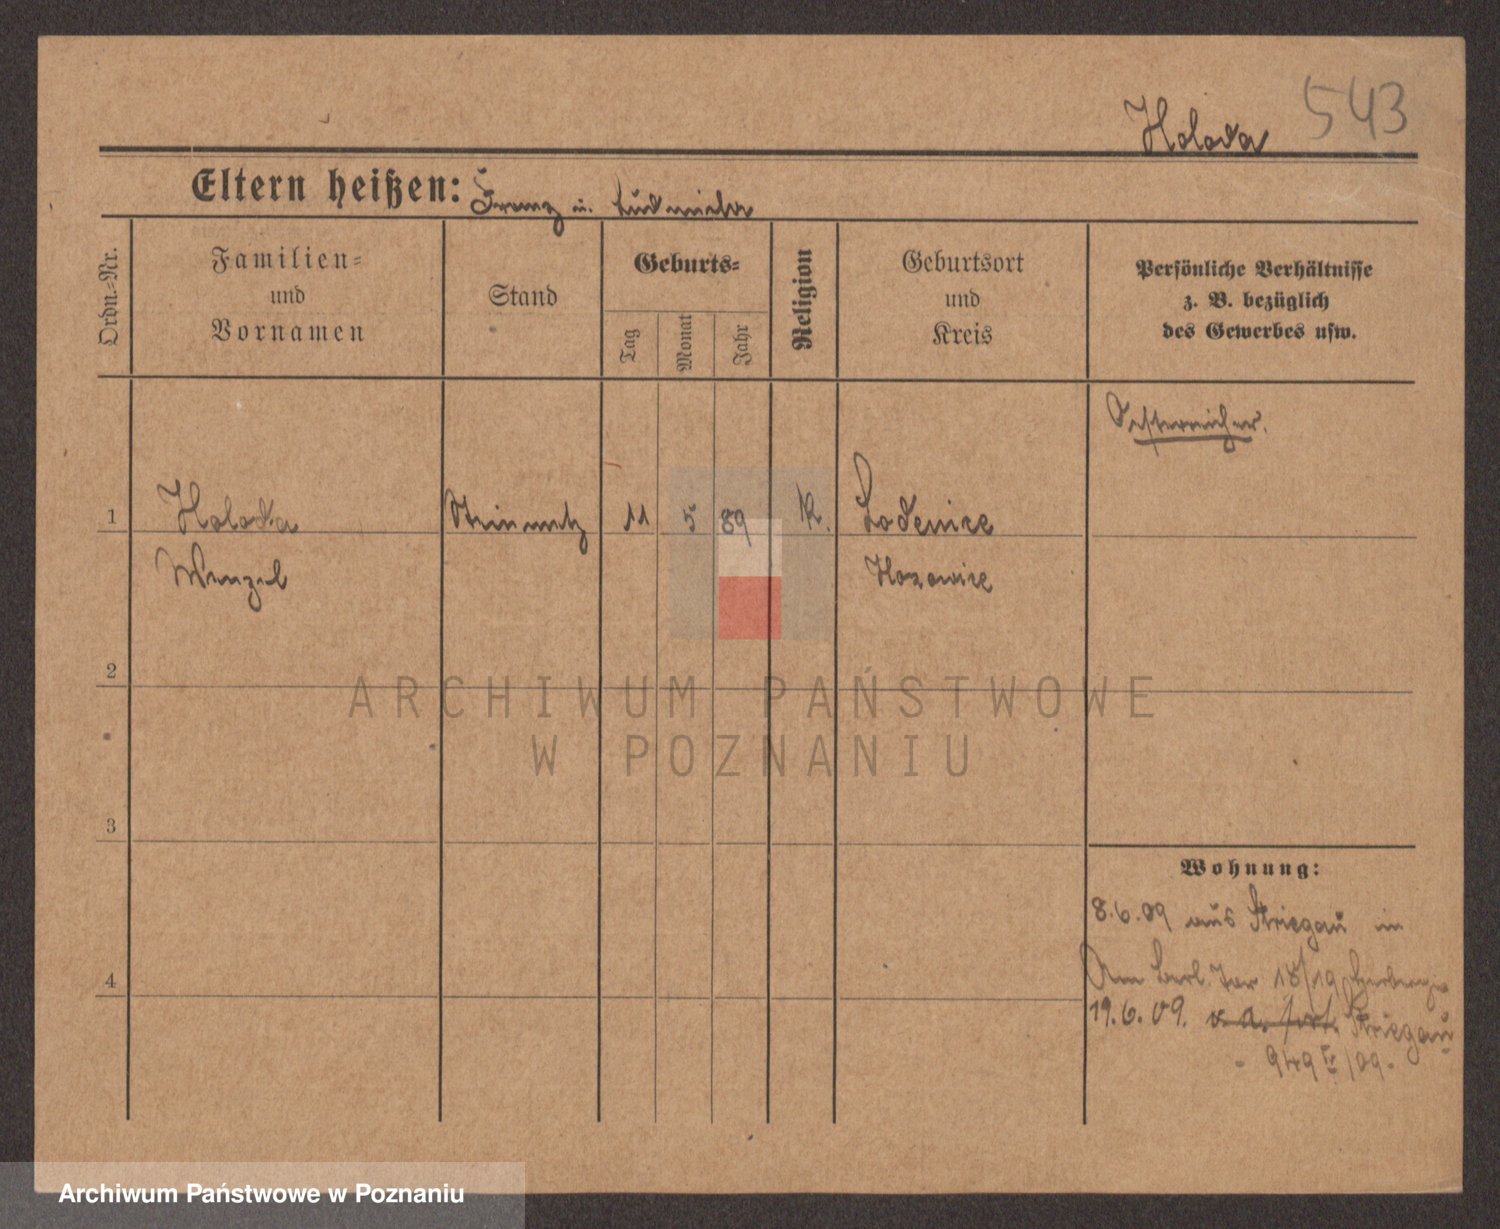 543
Holoda
Eltern heißen: Franz u. Ludmila
Ordn.-Nr.
Familien- und Vornamen
Stand
Geburts-
Tag
Monat
Jahr
Religion
Geburtsort und Kreis
Persönliche Verhältnisse z. B. bezüglich des Gewerbes usw.
Oesterreicher.
1 Holoda Steinmetz 11 5 89 K. Lodenice
Wenzel Hozowice
2
3
4
Wohnung:
8.6.09 aus Striegau in
Am Berl. Tor 18/19 Herberge
19.6.09. v. a. fort. Striegau
ARCHIWUM PAŃSTWOWE
W POZNANIU
Archiwum Państwowe w Poznaniu